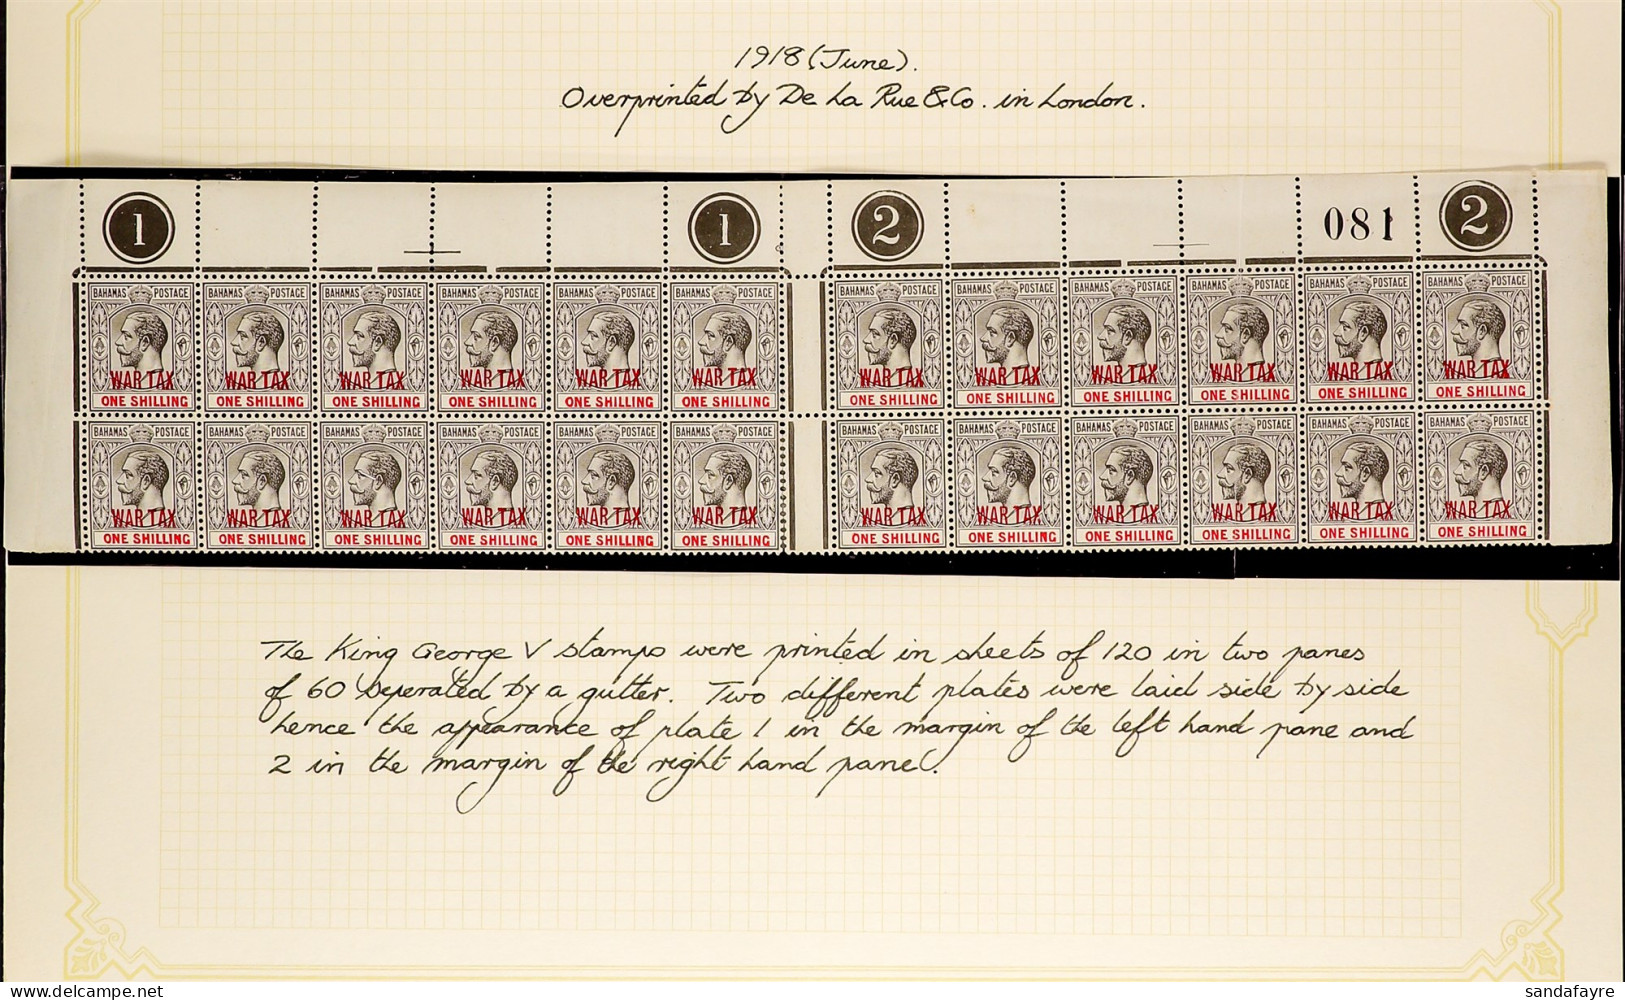 1918 (June).
Overprinted by De La Rue & Co. in London.
1 1 2 081 2
BAHAMAS POSTAGE BAHAMAS POSTAGE BAHAMAS POSTAGE BAHAMAS POSTAGE BAHAMAS POSTAGE BAHAMAS POSTAGE BAHAMAS POSTAGE BAHAMAS POSTAGE BAHAMAS POSTAGE BAHAMAS POSTAGE BAHAMAS POSTAGE BAHAMAS POSTAGE
WAR TAX WAR TAX WAR TAX WAR TAX WAR TAX WAR TAX WAR TAX WAR TAX WAR TAX WAR TAX WAR TAX WAR TAX
ONE SHILLING ONE SHILLING ONE SHILLING ONE SHILLING ONE SHILLING ONE SHILLING ONE SHILLING ONE SHILLING ONE SHILLING ONE SHILLING ONE SHILLING ONE SHILLING
BAHAMAS POSTAGE BAHAMAS POSTAGE BAHAMAS POSTAGE BAHAMAS POSTAGE BAHAMAS POSTAGE BAHAMAS POSTAGE BAHAMAS POSTAGE BAHAMAS POSTAGE BAHAMAS POSTAGE BAHAMAS POSTAGE BAHAMAS POSTAGE BAHAMAS POSTAGE
WAR TAX WAR TAX WAR TAX WAR TAX WAR TAX WAR TAX WAR TAX WAR TAX WAR TAX WAR TAX WAR TAX WAR TAX
ONE SHILLING ONE SHILLING ONE SHILLING ONE SHILLING ONE SHILLING ONE SHILLING ONE SHILLING ONE SHILLING ONE SHILLING ONE SHILLING ONE SHILLING ONE SHILLING
The King George V stamps were printed in sheets of 120 in two panes
of 60 seperated by a gutter. Two different plates were laid side by side
hence the appearance of plate 1 in the margin of the left hand pane and
2 in the margin of the right hand pane.
sandafayre